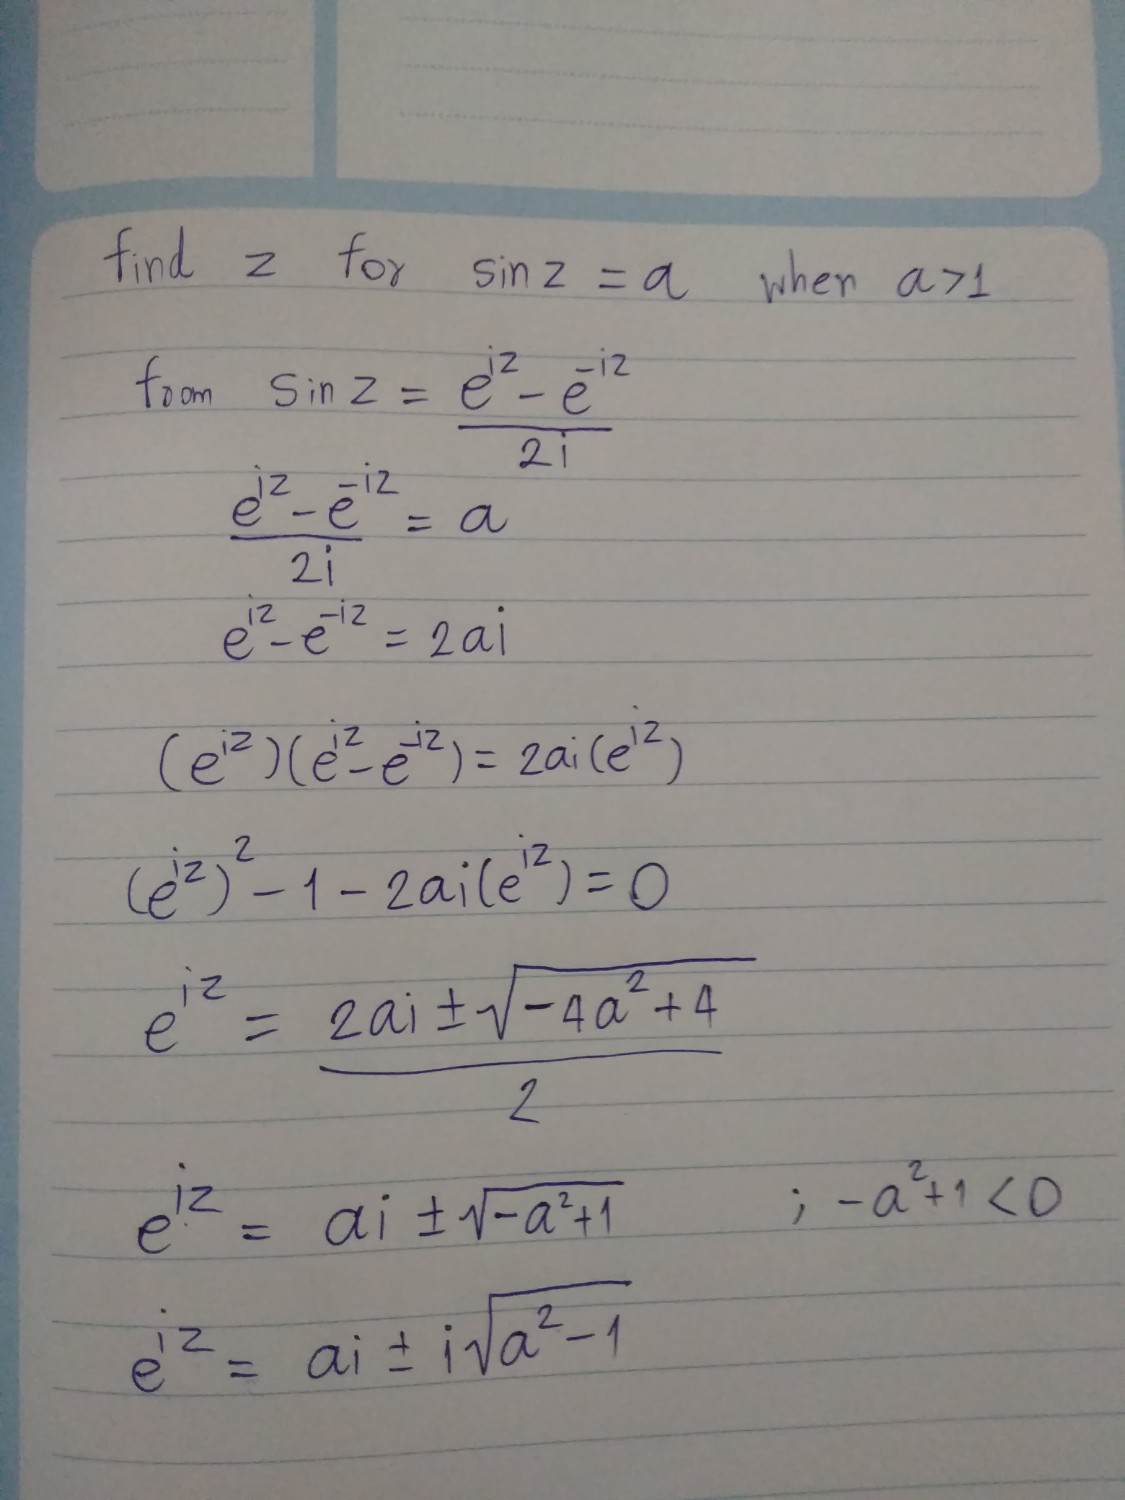 find z for sin z = a when a>1
from sin z = (e^{iz} - e^{-iz})/2i
(e^{iz} - e^{-iz})/2i = a
e^{iz} - e^{-iz} = 2ai
(e^{iz})(e^{iz} - e^{-iz}) = 2ai(e^{iz})
(e^{iz})^2 - 1 - 2ai(e^{iz}) = 0
e^{iz} = (2ai ± √(-4a^2+4))/2
e^{iz} = ai ± √(-a^2+1) ; -a^2+1 < 0
e^{iz} = ai ± i√(a^2-1)